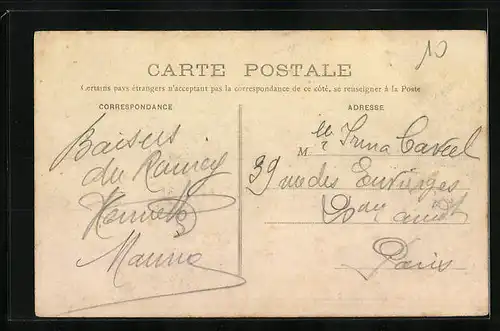 10
CARTE POSTALE
Certains pays étrangers n'acceptant pas la correspondance de ce côté, se renseigner à la Poste
CORRESPONDANCE
Baisers
du Raincy
ADRESSE
Mlle Irma
39 rue des Envierges
Paris